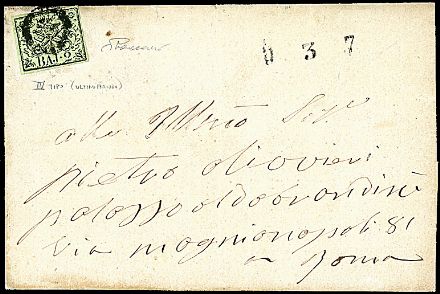 BAJ 2
537
III TIPO (ULTIMO
alla Illmo Sigr
pietro olivieri
palazzo aldobrandini
via magnianapoli 81
a Roma